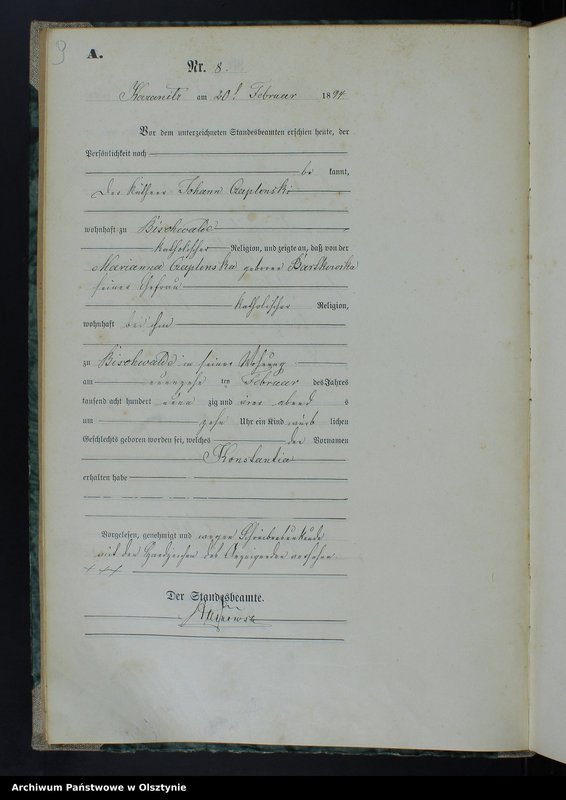 9
A.
Nr. 8.
am 20t Februar 1894
Vor dem unterzeichneten Standesbeamten erschien heute, der
Persönlichkeit nach
be kannt,
Der Käthner Johann Czaplonski
wohnhaft zu Bischwalde
katholischer Religion, und zeigte an, daß von der
Marianna Czaplonska geborene Bartkowska
seiner Ehefrau
katholischer Religion,
wohnhaft bei ihm
zu Bischwalde in seiner Wohnung
am ten Februar des Jahres
tausend acht hundert neun zig und vier abend s
um zehn Uhr ein Kind weib lichen
Geschlechts geboren worden sei, welches der Vornamen
Konstantia
erhalten habe
Vorgelesen, genehmigt und wegen
mit den Handzeichen des versehen.
+++
Der Standesbeamte.
Archiwum Państwowe w Olsztynie